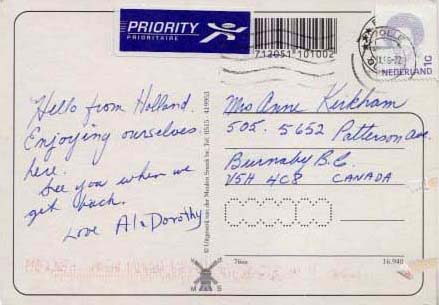 PRIORITY
PRIORITAIRE
712051101002
NEDERLAND
Hello from Holland.
Enjoying ourselves
here.
See you when we
get back.
Love Al & Dorothy
© Uitgeverij van der Meulen Sneek bv, Tel. 0515 - 419953
Mrs Anne Kirkham
505. 5652 Patterson Ave.
Burnaby B.C.
V5H 4C8 CANADA
M S
76m
16.940